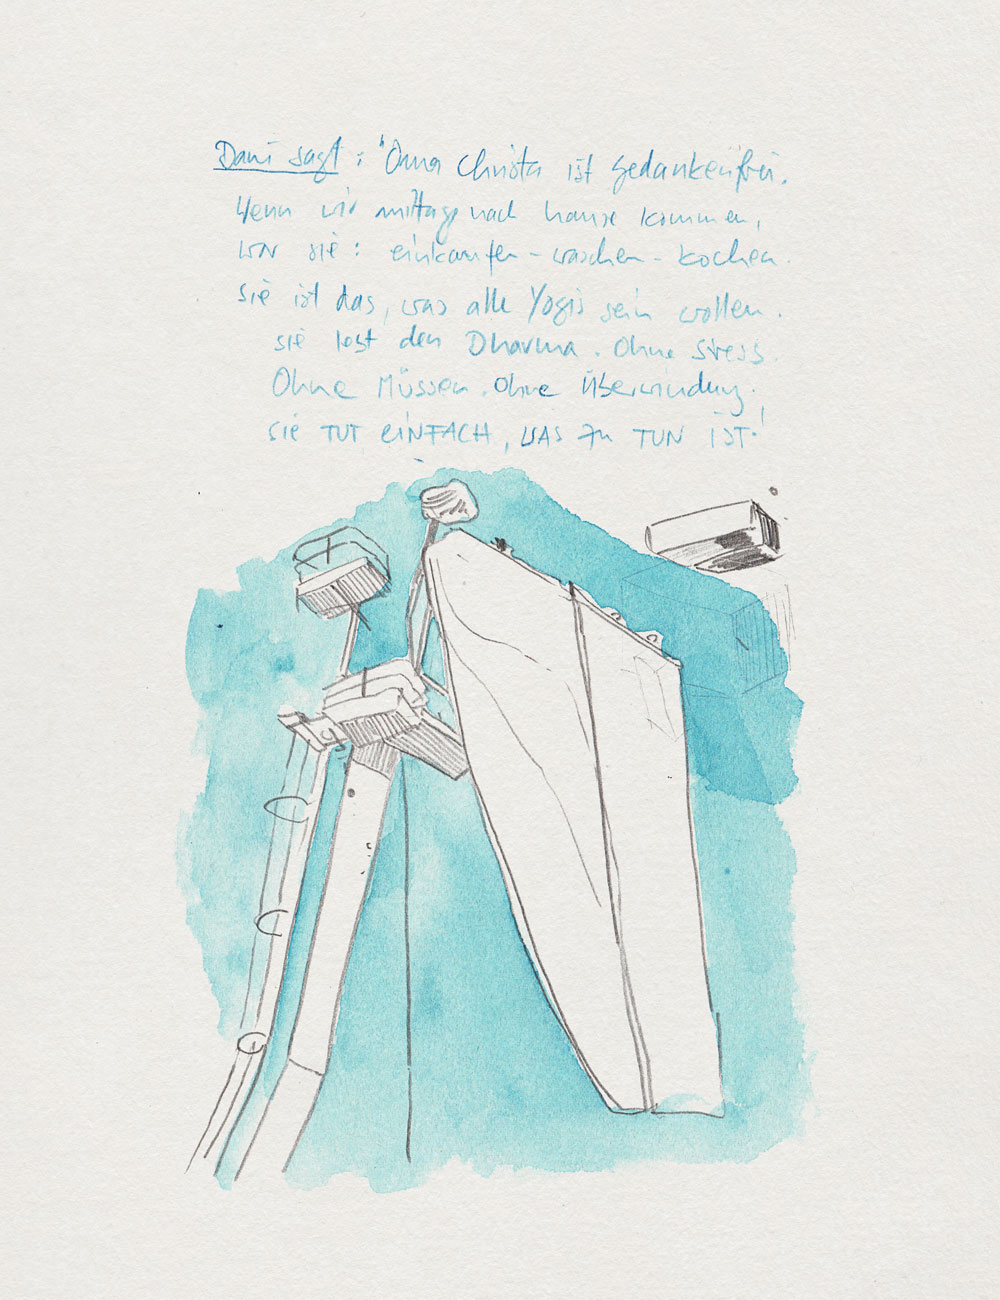 Dani sagt: "Oma Christa ist gedankenfrei.
Wenn wir mittags nach hause kommen,
war sie: einkaufen - waschen - kochen.
Sie ist das, was alle Yogis sein wollen.
Sie lebt den Dharma. Ohne Stress.
Ohne Müssen. Ohne Überwindung.
Sie TUT EINFACH, WAS ZU TUN IST!